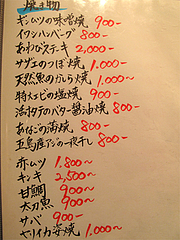 焼き物
ギンムツの味噌焼 900-
イワシハンバーグ 800-
あわびステーキ 2,000-
サザエのつぼ焼 1,000-
天然魚のかしら焼 1,000~
特大エビの塩焼 900-
活ホタテのバター醤油焼 800-
あなごの海焼 800-
五島産アジの一夜干し 800-
赤ムツ 1,800~
キンキ 2,500~
甘鯛 900~
太刀魚 900~
サバ 900-
ヤリイカ 姿焼 1,000~